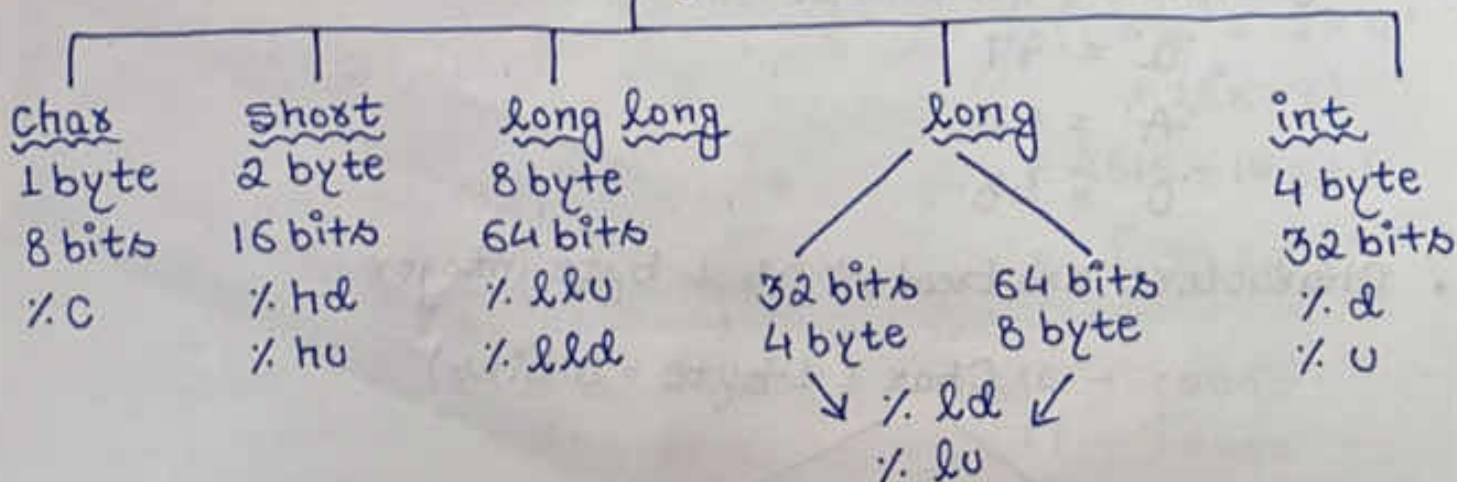 char
1 byte
8 bits
%c
short
2 byte
16 bits
%hd
%hu
long long
8 byte
64 bits
%llu
%lld
long
32 bits
4 byte
64 bits
8 byte
%ld
%lu
int
4 byte
32 bits
%d
%u